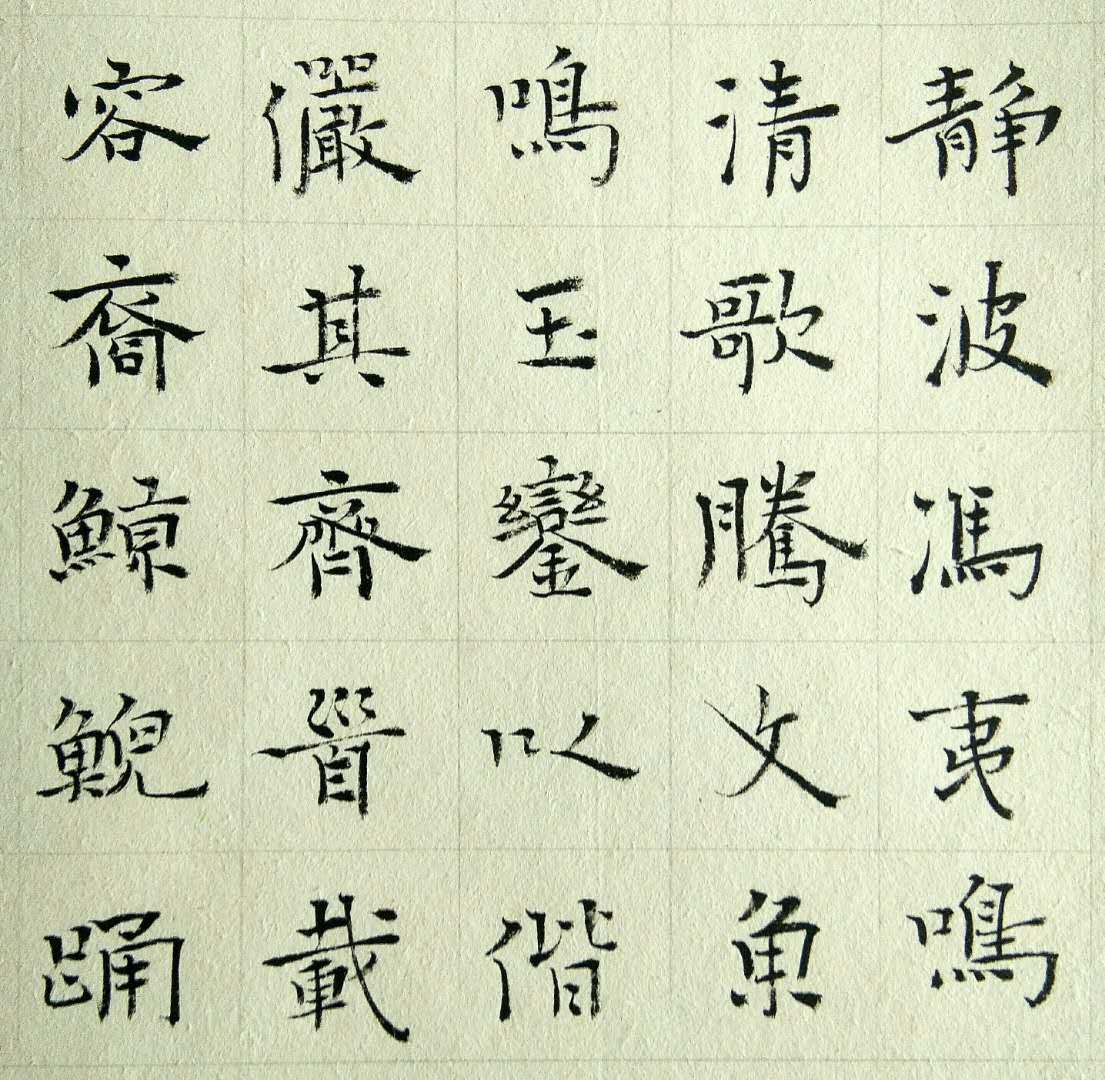 静波馮夷鳴
清歌騰文魚
鳴玉鑾以偕
儼其齊𩠐載
容裔鯨鯢踊